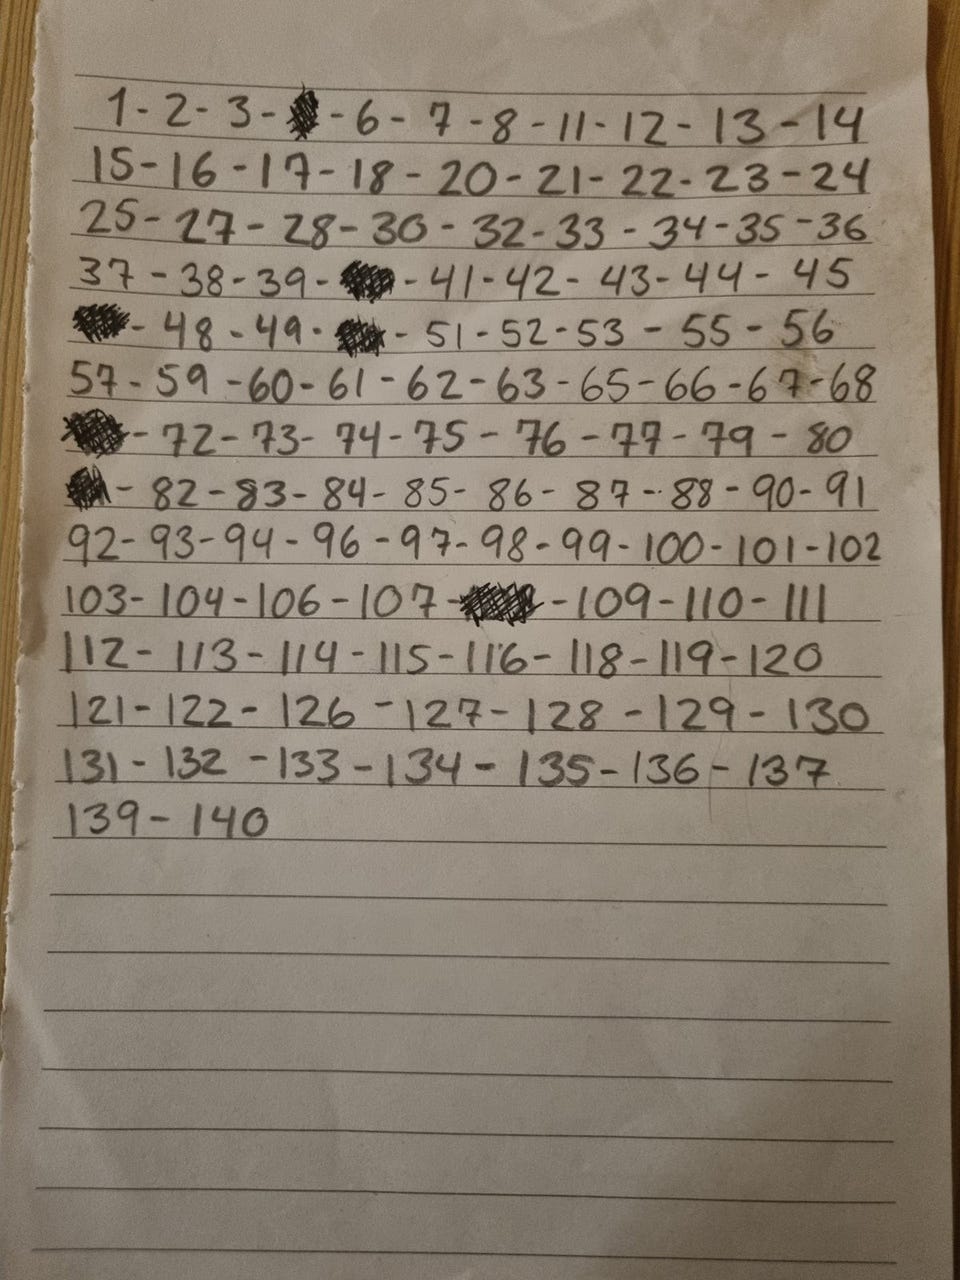 1-2-3- -6-7-8-11-12-13-14
15-16-17-18-20-21-22-23-24
25-27-28-30-32-33-34-35-36
37-38-39- -41-42-43-44-45
-48-49- -51-52-53-55-56
57-59-60-61-62-63-65-66-67-68
-72-73-74-75-76-77-79-80
-82-83-84-85-86-87-88-90-91
92-93-94-96-97-98-99-100-101-102
103-104-106-107- -109-110-111
112-113-114-115-116-118-119-120
121-122-126-127-128-129-130
131-132-133-134-135-136-137
139-140